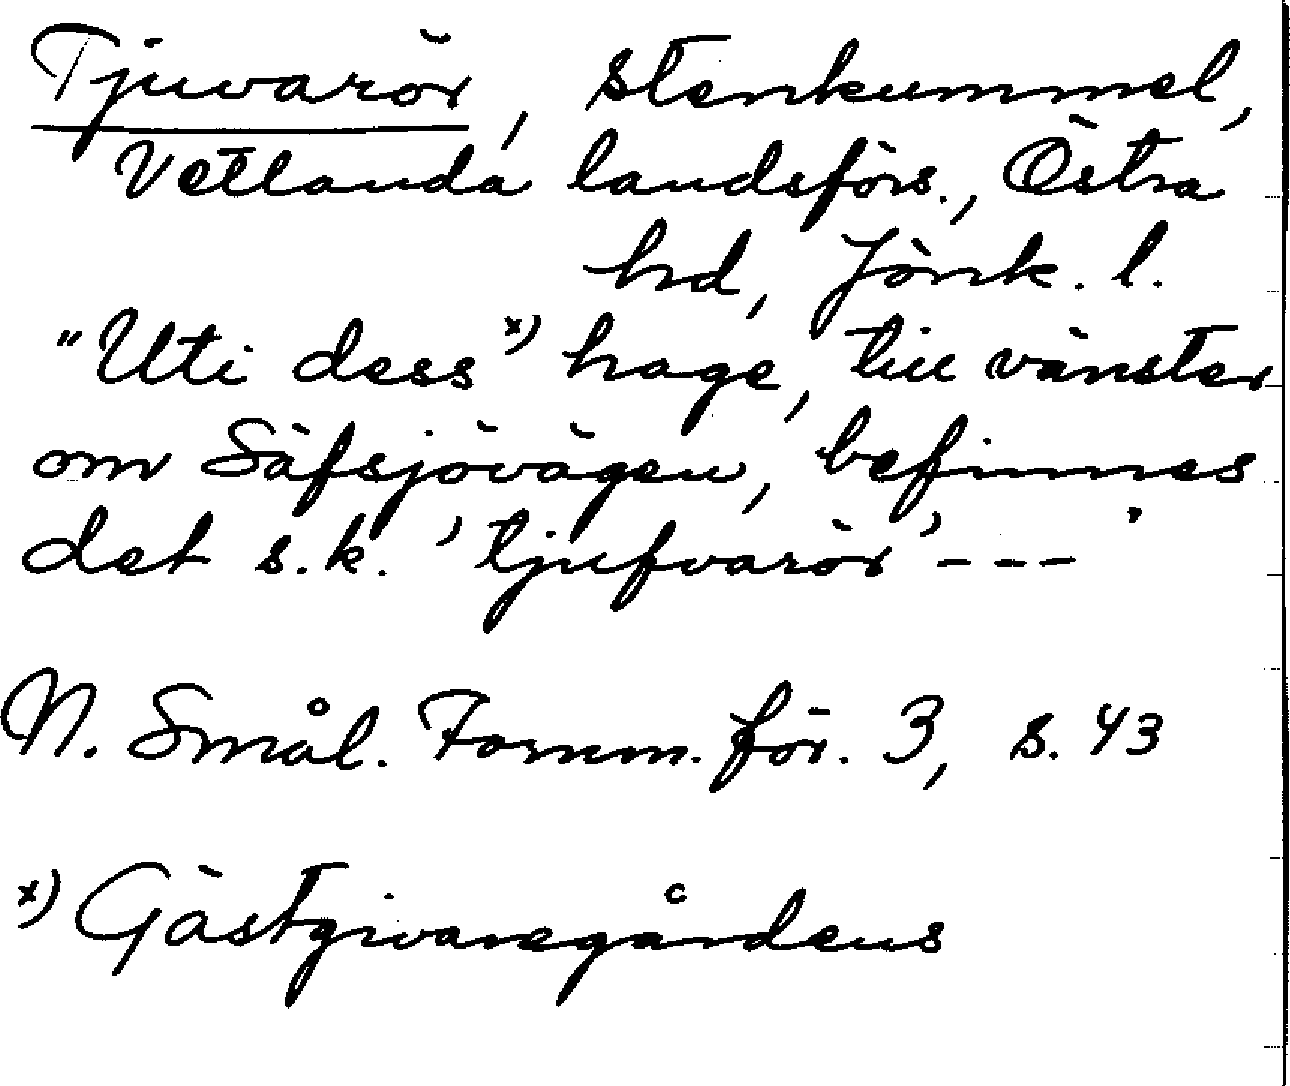 Tjuvarör, stenkummel,
Vetlanda landsförs., Östra
hd, Jönk. l.
"Uti dess x) hage, till vänster
om Säfsjövägen, befinnes
det s.k. 'tjufvarör' --- "
N. Smål. Fornm. för. 3, s. 43
x) Gästgivaregårdens